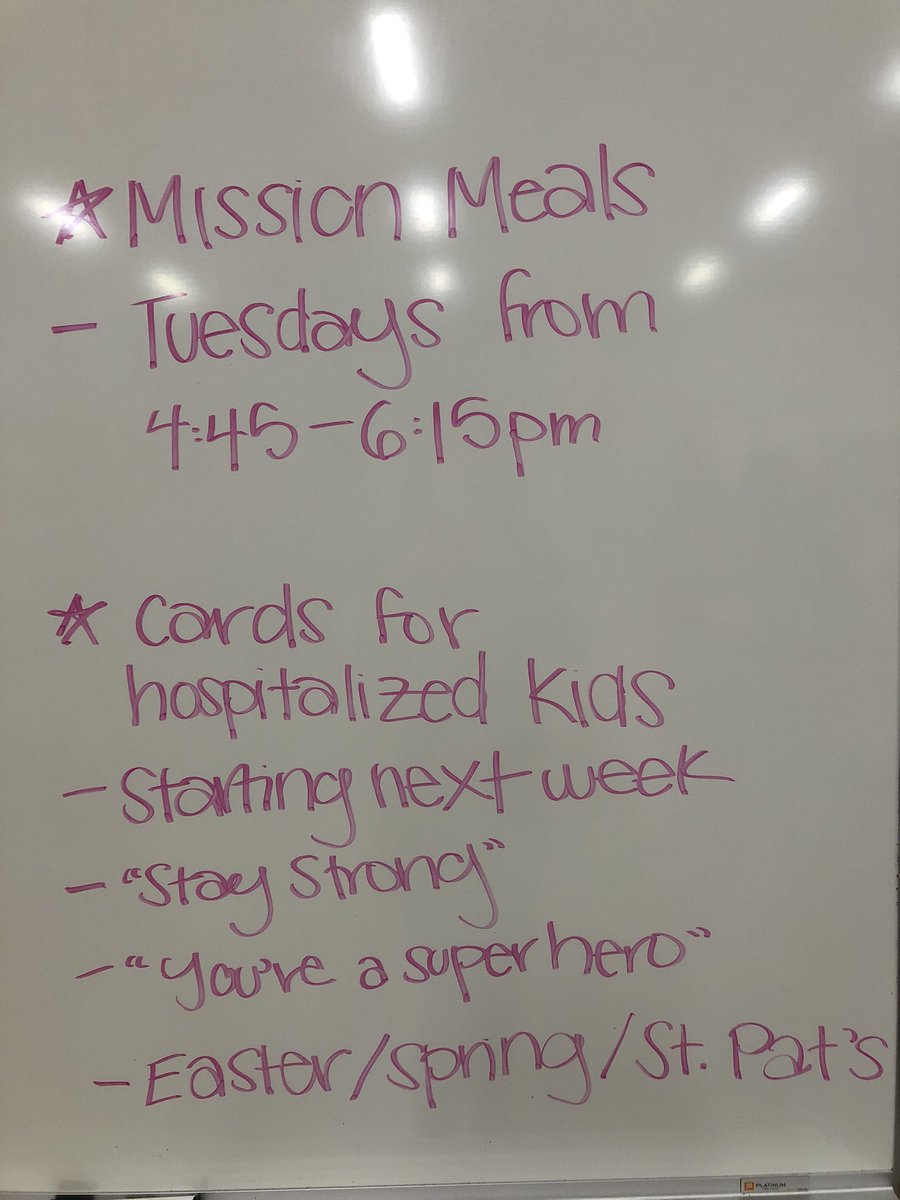 ☆ Mission Meals
- Tuesdays from
4:45-6:15pm
☆ Cards for
hospitalized kids
- Starting next week
- "Stay Strong"
- "You're a super hero"
- Easter/Spring/St. Pat's
PLATINUM